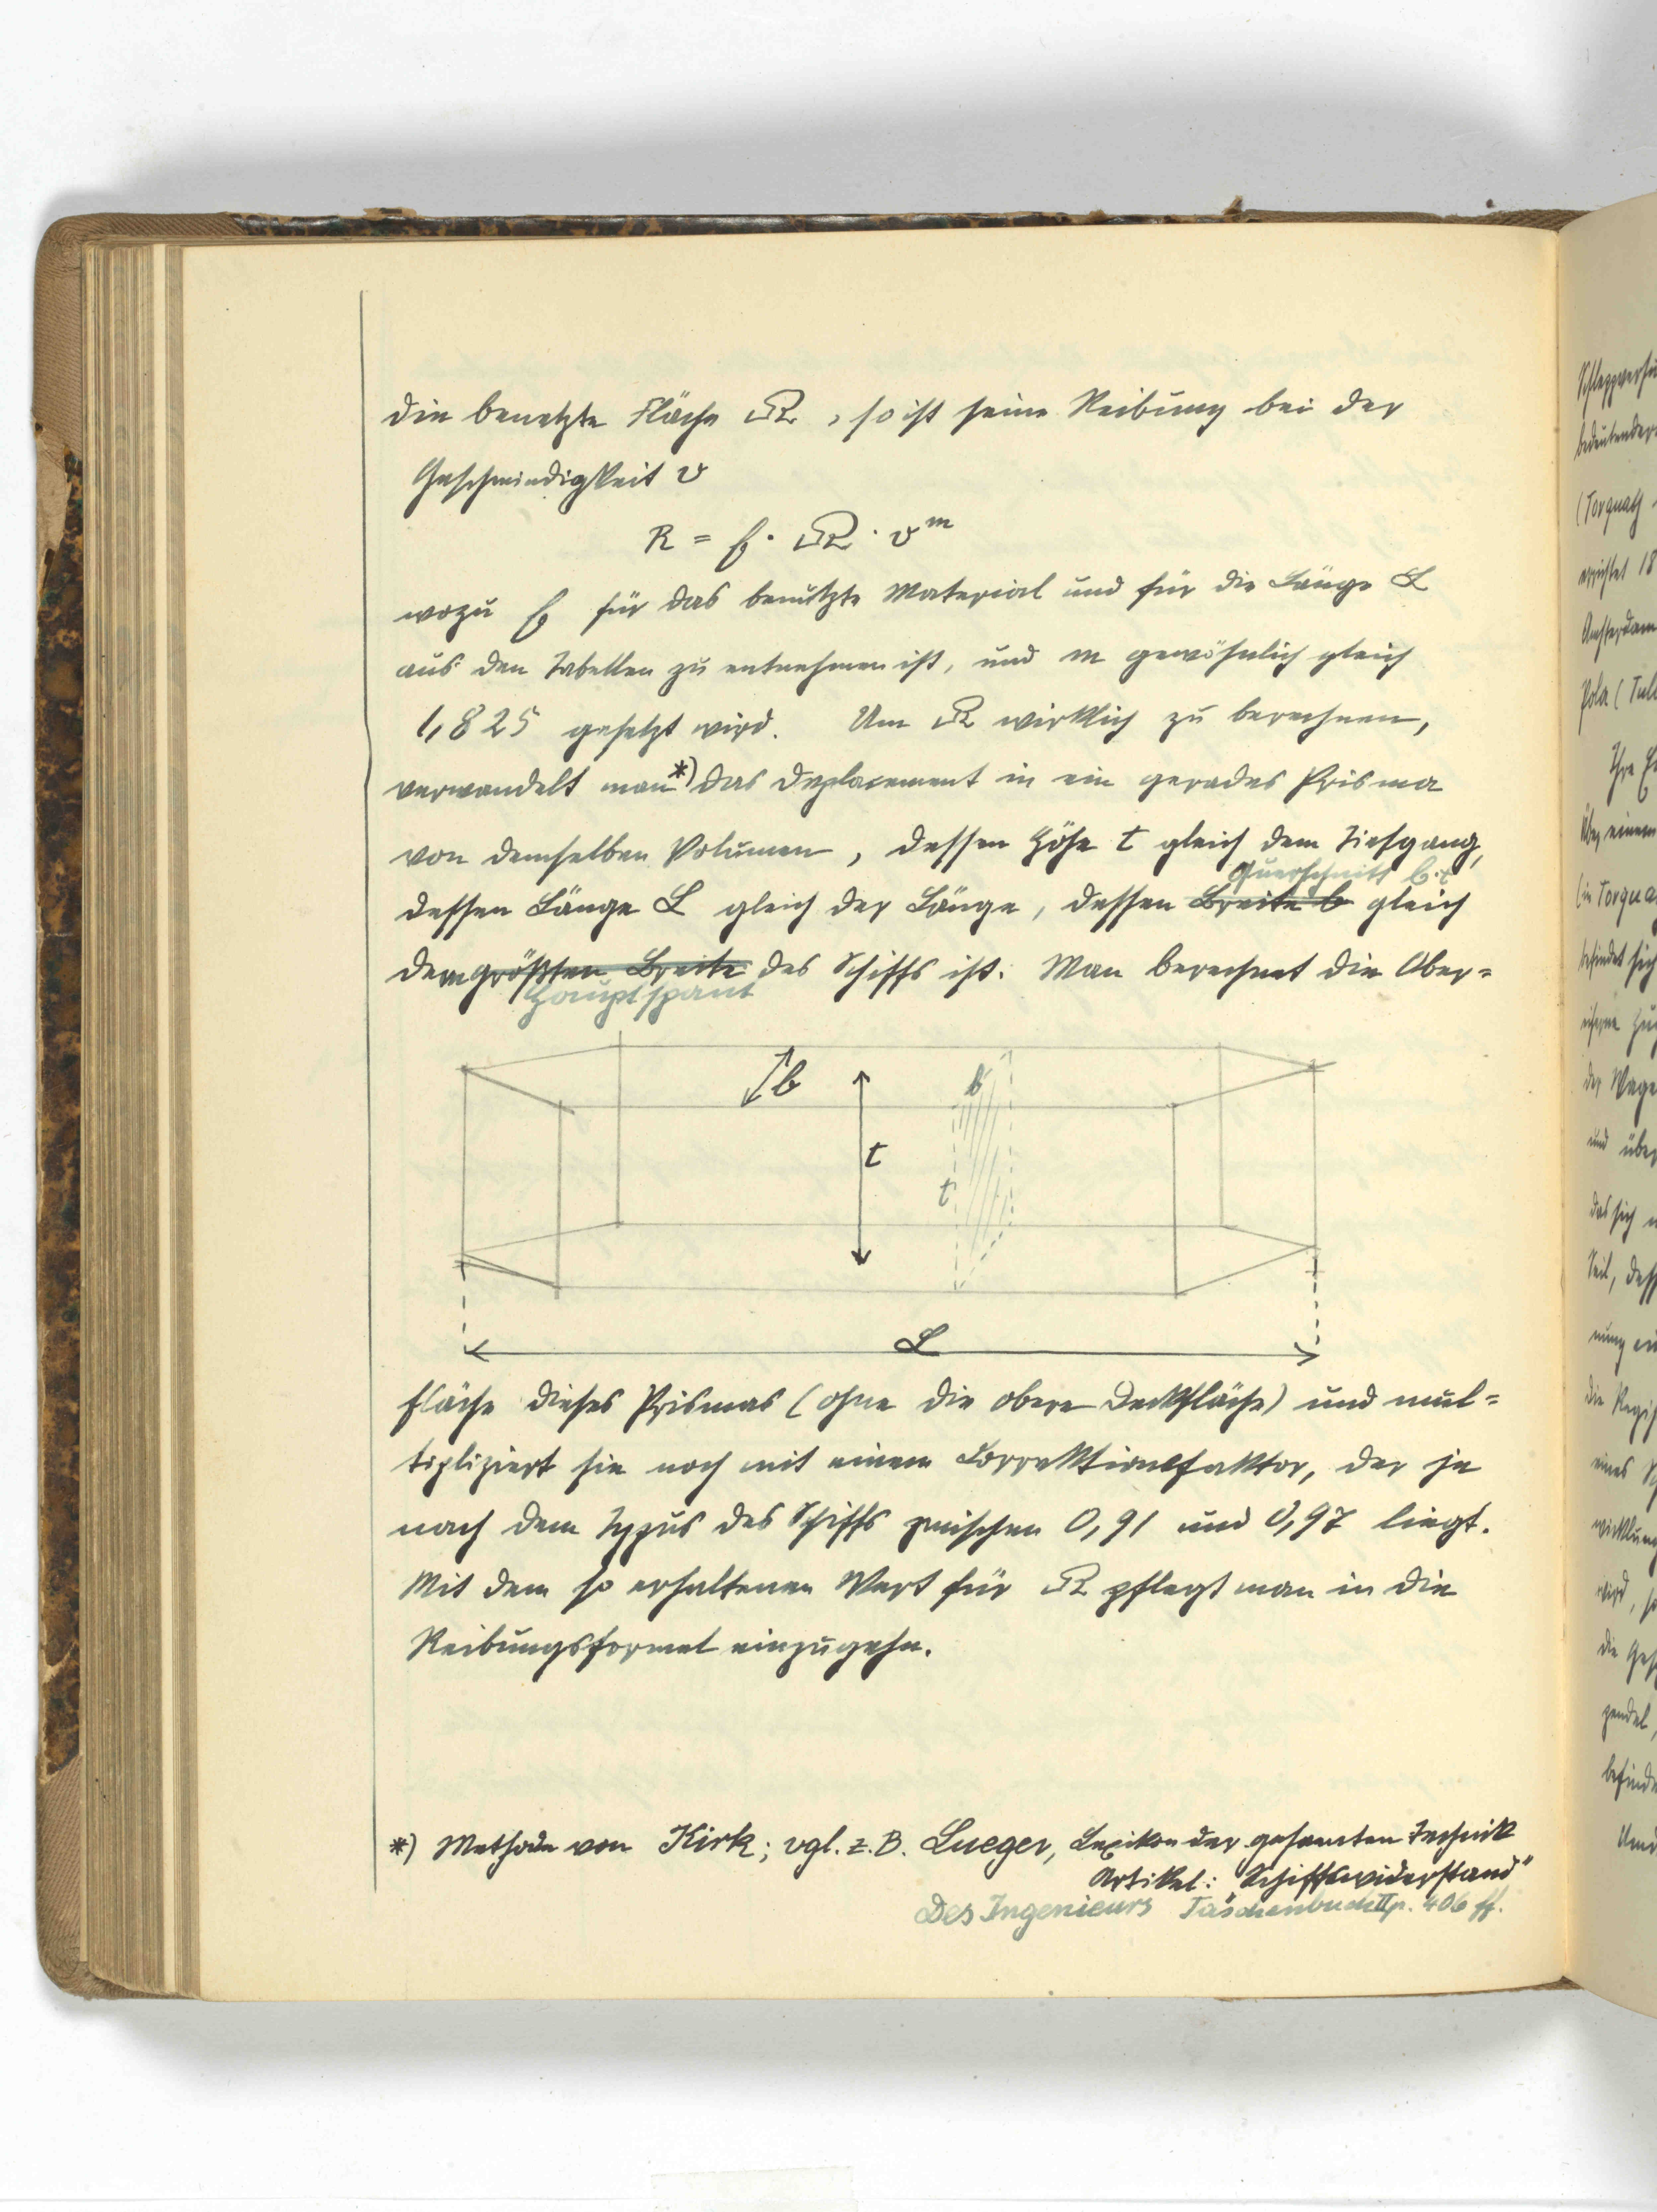 die benetzte Fläche Ω, so ist seine Reibung bei der
Geschwindigkeit v
R = f · Ω · v^m
wozu f für das benutzte Material und für die Länge L
aus den Tabellen zu entnehmen ist, und m gewöhnlich gleich
1,825 gesetzt wird. Um Ω wirklich zu berechnen,
verwandelt man *) das Deplacement in ein gerades Prisma
von demselben Volumen, dessen Höhe t gleich dem Tiefgang,
Querschnitt b·t
dessen Länge L gleich der Länge, dessen Breite b gleich
dem größten Breite des Schiffs ist. Man berechnet die Ober=
Hauptspant
b
b
t
t
L
fläche dieses Prismas (ohne die obere Deckfläche) und mul=
tipliziert sie noch mit einem Correktionsfaktor, der je
nach dem Typus des Schiffs zwischen 0,91 und 0,97 liegt.
Mit dem so erhaltenen Wert für Ω pflegt man in die
Reibungsformel einzugehn.
*) Methode von Kirk; vgl. z.B. Lueger, Lexikon der gesamten Technik
Artikel: "Schiffswiderstand"
Des Ingenieurs Taschenbuch II p. 406 ff.
Schleppversu
bedeutender
(Torquay
errichtet 18
Amsterdam
Pola (
Ihre
einem
(in Torqua
befindet sich
eiserne
der Wage
und über
das sich
Seil,
die
eines
wird, so
die
pendel,
Und